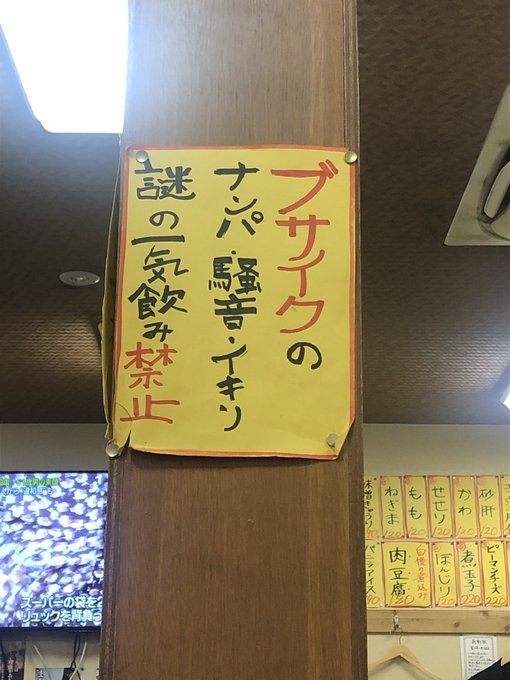 ブサイクの
ナンパ・騒音・イキリ
謎の一気飲み禁止
スーパーの袋を2
リュックを背負っ
砂肝
120
かわ
120
せせり
120
もも
120
ねぎま
120
ピーマンチーズ
220
煮玉子
ぼんじり
120
自慢の煮込み
肉豆腐
バニラアイス